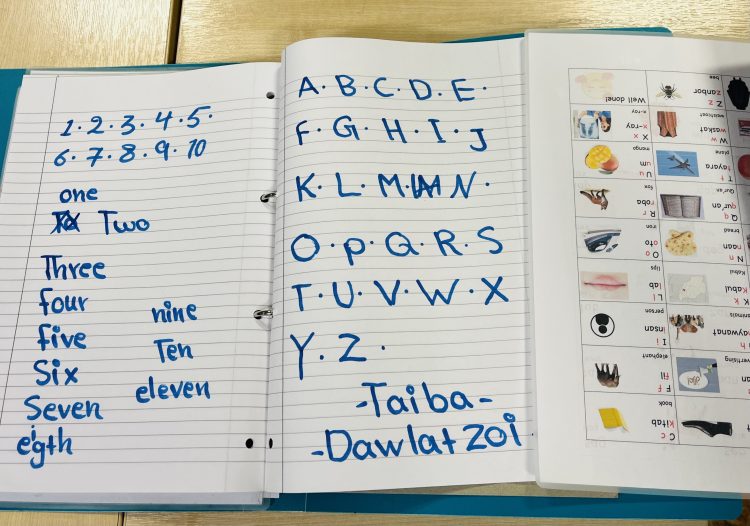 1. 2. 3. 4. 5.
6. 7. 8. 9. 10
one
Two
Three
four
five
Six
Seven
eigth
nine
Ten
eleven
A. B. C. D. E.
F. G. H. I. J
K. L. M. N.
O. P. Q. R. S
T. U. V. W. X
Y. Z.
-Taiba-
-Dawlat zoi
C c
kitab
book
F f
fil
elephant
animals
I i
insan
person
K
Kabul
Kabul
L l
lab
lips
N n
naan
bread
O o
oto
iron
Q q
qur'an
Qur'an
R r
roba
fox
T t
tayara
plane
U u
um
mango
W w
waskat
X x
x-ray
x-ray
Z z
zanbor
bee
Well done!